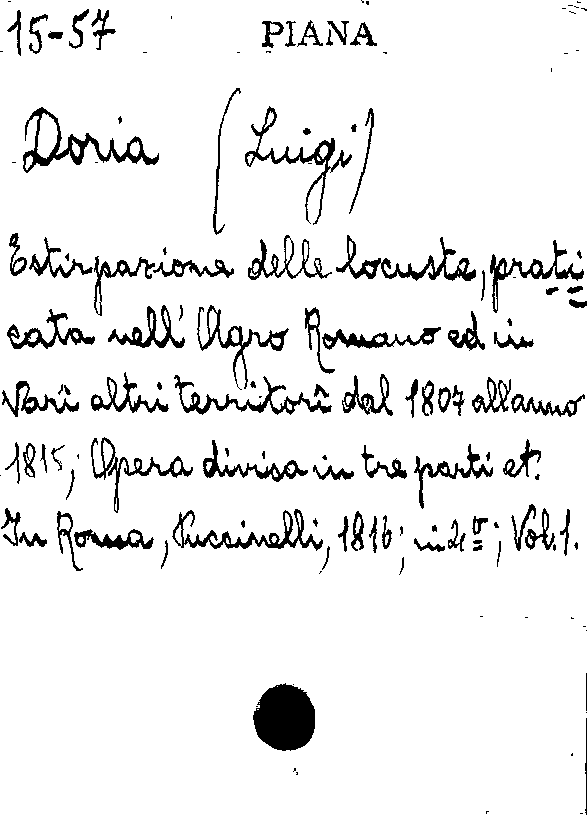 15-57 PIANA
Doria (Luigi)
Estirpazione delle locuste, prati=
cata nell' Agro Romano ed in
varî altri territorî dal 1807 all'anno
1815; Opera divisa in tre parti et.
In Roma, Puccinelli, 1816; in 4º; Vol. 1.